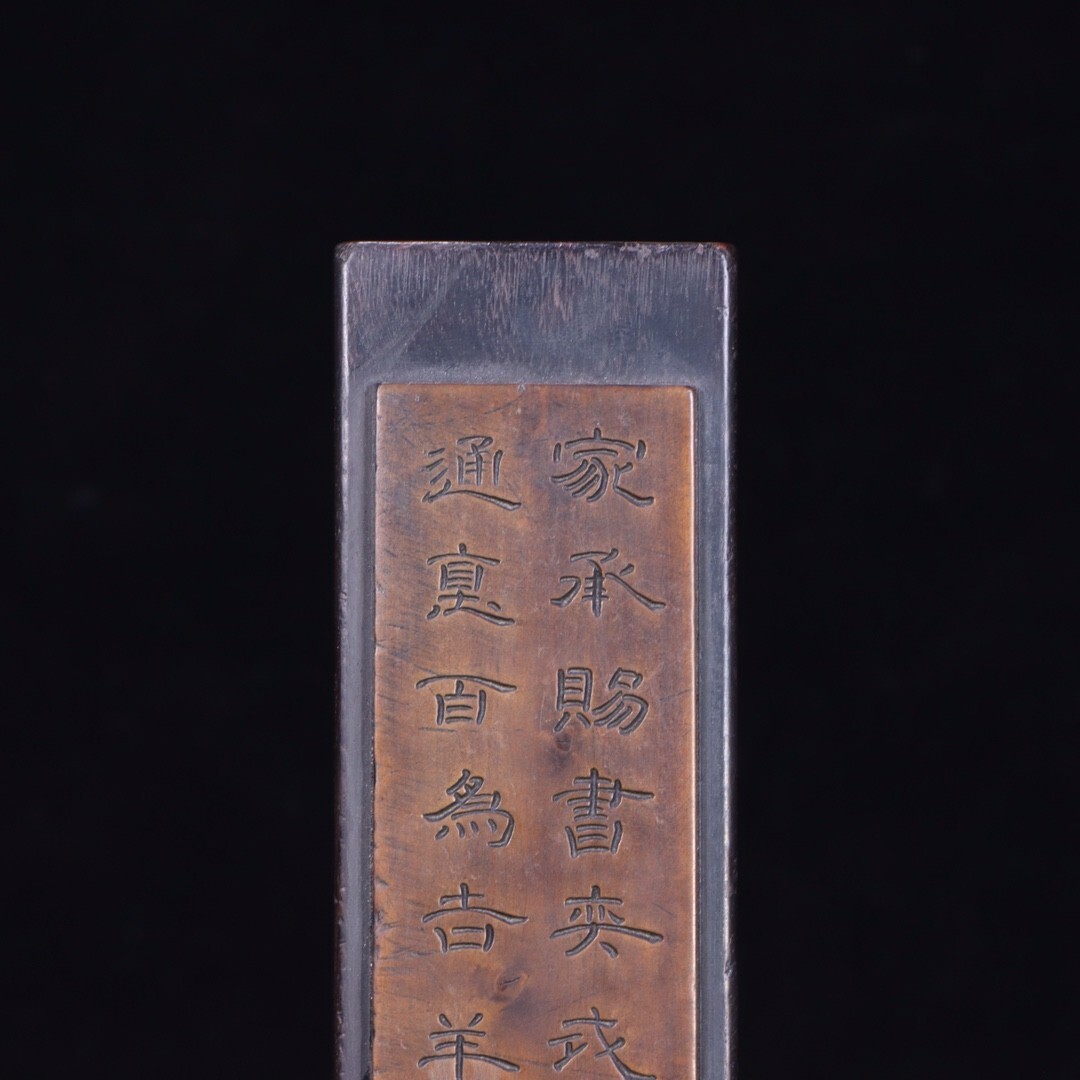 家承賜書奕
通悳百為吉羊